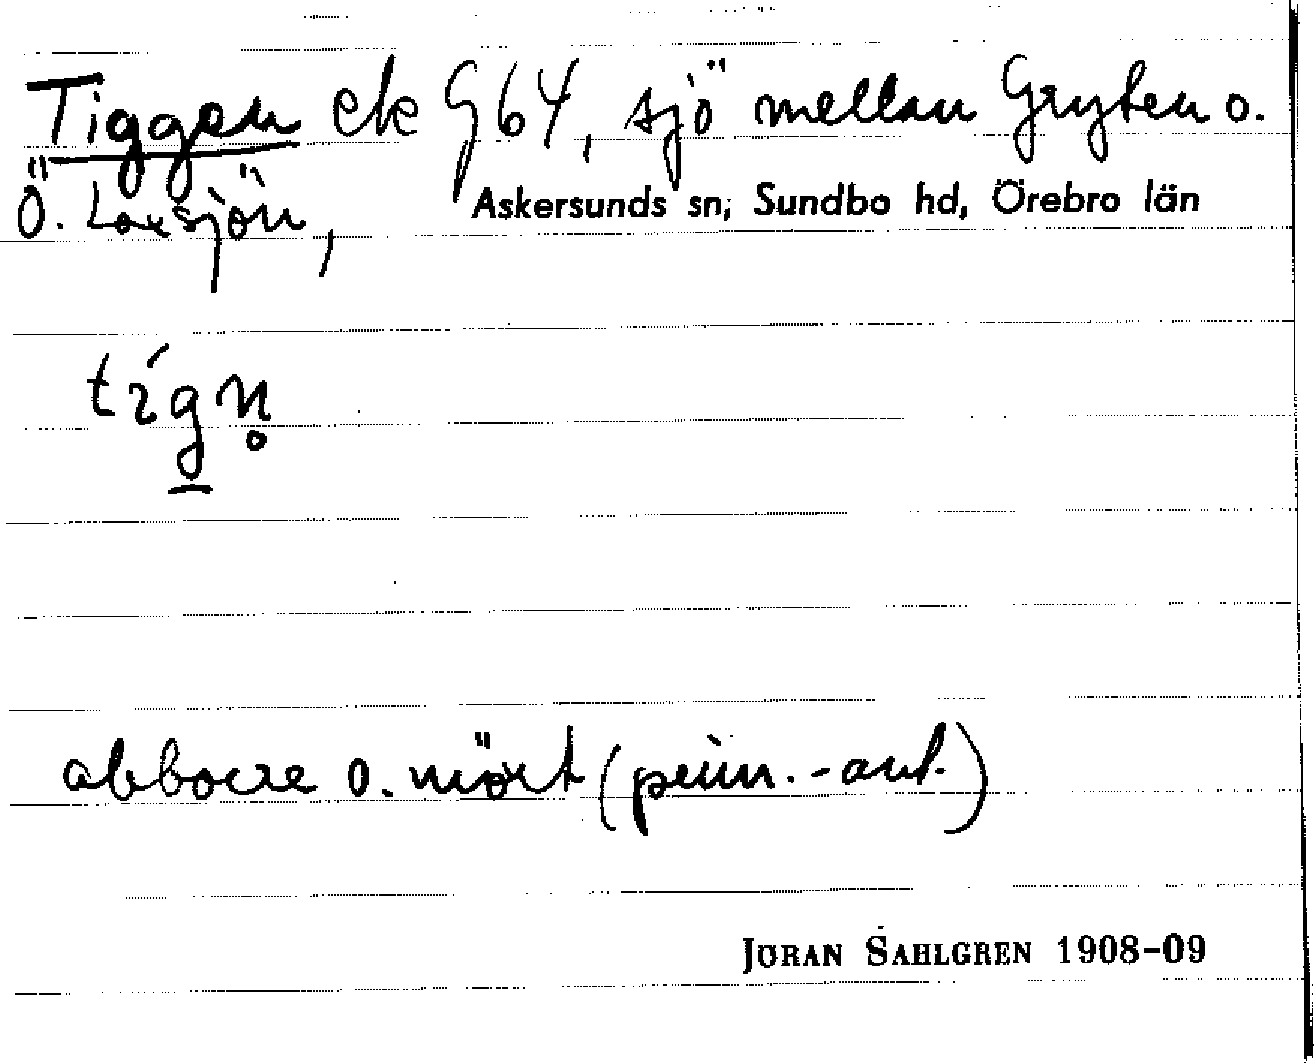 Tiggen ek G64, sjö mellan Gryten o.
Ö. Laxsjön, Askersunds sn, Sundbo hd, Örebro län
tígn̥
abborre o. mört (prim.-ant.)
JÖRAN SAHLGREN 1908-09